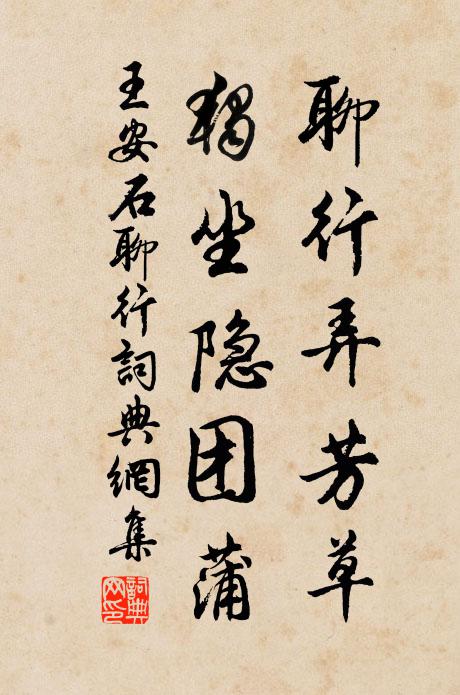 聊行弄芳草
獨坐隐团蒲
王安石聊行詞典網集
詞典网印